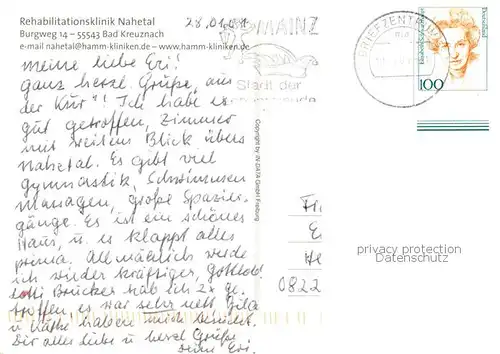 Rehabilitationsklinik Nahetal
Burgweg 14 – 55543 Bad Kreuznach
e-mail nahetal@hamm-kliniken.de – www.hamm-kliniken.de
28.01.01
MAINZ
Stadt der
BRIEFZENTRUM
Deutschland
100
meine liebe Eri!
ganz herzl. Grüße, aus
der Kur! Ich habe es
gut getroffen, Zimmer
mit weitem Blick übers
Nahetal. Es gibt viel
gymnastik, Schwimmen
massagen, große Spazier-
gänge. Es ist ein schönes
Haus, u. es klappt alles
prima. Allmählich werde
ich wieder kräftiger, Gottlob!
Brücker hab ich 2x ge-
troffen, es war sehr nett,
u Käthe haben mich besucht.
Dir alles liebe u herzl Grüße,
deine Eri.
Copyright by IN DATA GmbH Freiburg
Fr
E
He
0822
privacy protection
Datenschutz